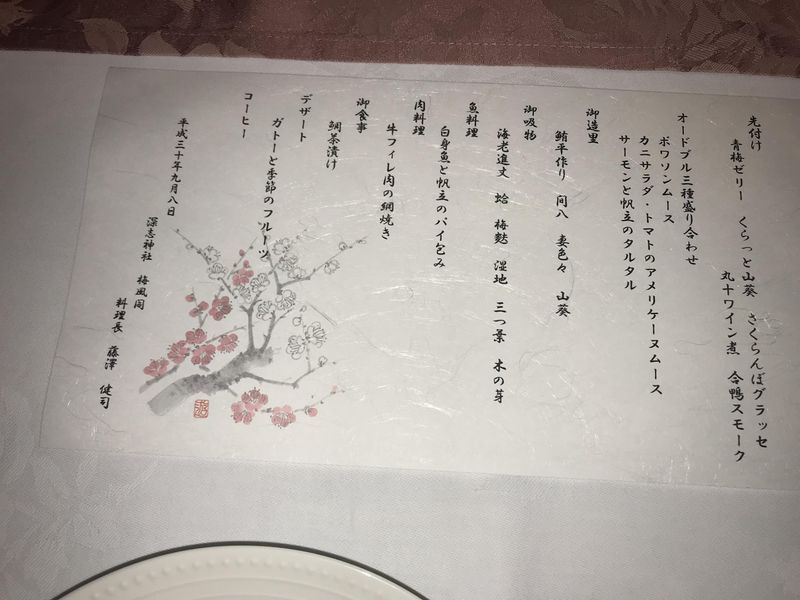 先付け
青梅ゼリー くらっと山葵 さくらんぼグラッセ
丸十ワイン煮 合鴨スモーク
オードブル三種盛り合わせ
ポワソンムース
カニサラダ・トマトのアメリケーヌムース
サーモンと帆立のタルタル
御造里
鮪平作り 間八 妻色々 山葵
御吸物
海老進丈 蛤 梅麩 湿地 三つ葉 木の芽
魚料理
白身魚と帆立のパイ包み
肉料理
牛フィレ肉の網焼き
御食事
鯛茶漬け
デザート
ガトーと季節のフルーツ
コーヒー
平成三十年九月八日
深志神社 梅風閣
料理長 藤澤 健司